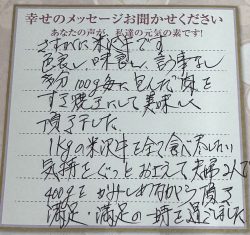 幸せのメッセージお聞かせください
あなたの声が、私達の元気の素です!
さすがに米沢牛です
色良し、味良し、言う事なし
多分100g毎に包んだ
すき焼きにして美味しく
頂きました。
1kgの米沢牛を全て食べたい
気持をぐっとおさえて夫婦2人で
400gをかみしめながら頂き
満足、満足の一時を過しました